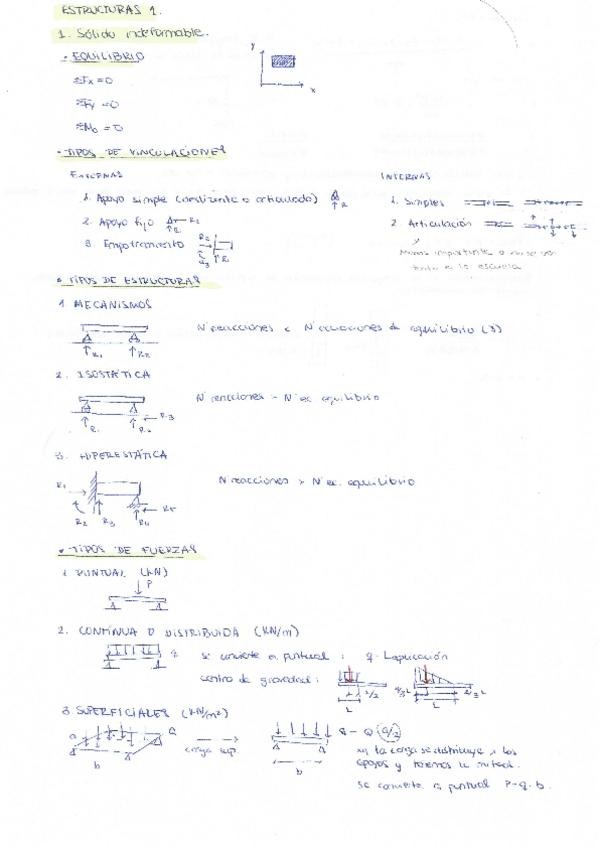 ESTRUCTURAS 1.
1. Sólido indeformable.
• EQUILIBRIO
y
x
ΣFx = 0
ΣFy = 0
ΣMo = 0
• TIPOS DE VINCULACIONES
EXTERNAS
1. Apoyo simple (constituente o articulado) R
2. Apoyo fijo R2
R1
3. Empotramiento R2
R3 R1
INTERNAS
1. Simples
2. Articulación
Menos importante
la escuela
• TIPOS DE ESTRUCTURAS
1. MECANISMOS
Nº reacciones < Nº ecuaciones de equilibrio (3)
R1 R2
2. ISOSTÁTICA
Nº reacciones = Nº ec. equilibrio
R3
R1 R2
3. HIPERESTÁTICA
Nº reacciones > Nº ec. equilibrio
R1
R5
R2 R3 R4
• TIPOS DE FUERZAS
1. PUNTUAL (kN)
P
2. CONTINUA O DISTRIBUIDA (kN/m)
q se convierte a puntual : q · Laplicación
centro de gravedad : L/2 2/3 L
L L
3. SUPERFICIALES (kN/m²)
a Q
carga sup.
b
b
q = Q · (a/2)
la carga se distribuye a los
apoyos y tomamos la mitad.
se convierte a puntual P = q · b.